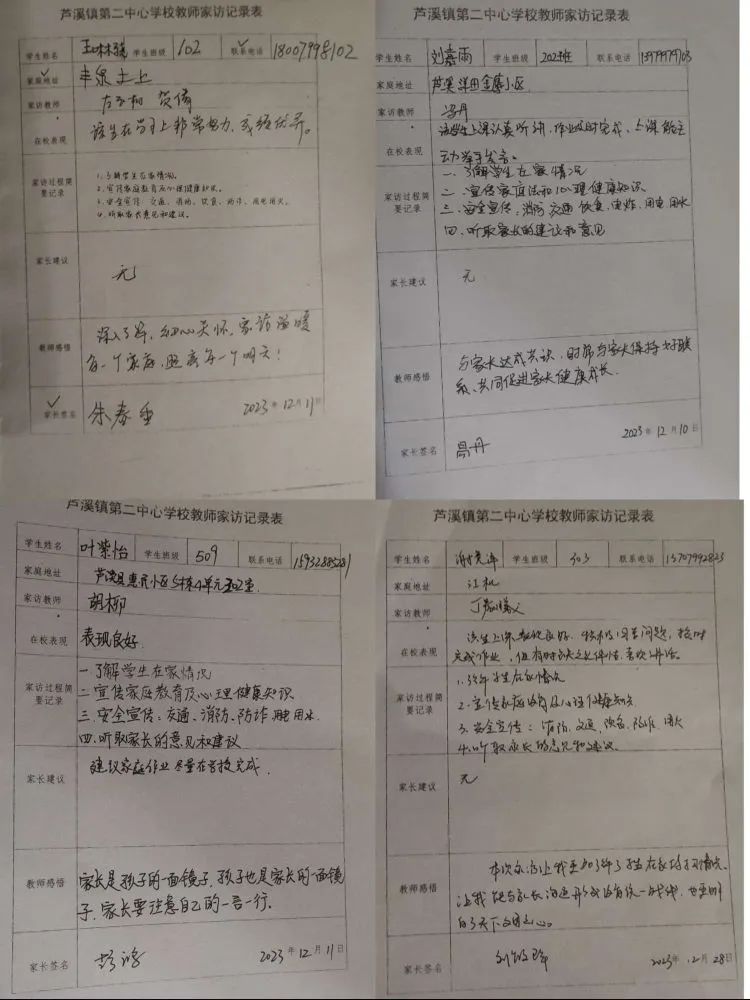 芦溪镇第二中心学校教师家访记录表
学生姓名 学生班级 102 联系电话 18007998102
家庭地址 丰泉土上
家访教师 贺倩
在校表现 该生在学习上非常努力,成绩优异。
家访过程简要记录
1.了解学生在家情况。
2.宣传家庭教育及心理健康知识。
3.安全宣传:交通、消防、饮食、防诈、用电用火。
4.听取家长意见和建议。
家长建议 无
教师感悟 深入了解,细心关怀,家访温暖
每一个家庭,照亮每一个明天!
家长签名 朱春香 2023年12月11日
芦溪镇第二中心学校教师家访记录表
学生姓名 刘嘉雨 学生班级 202班 联系电话
家庭地址 芦溪 金鹰小区
家访教师
在校表现 该学生上课认真听讲,作业及时完成,上课能主
动举手发言。
家访过程简要记录
一.了解学生在家情况
二.宣传家庭法和心理健康知识
三.安全宣传:消防 交通 饮食 用电 用水
四.听取家长的建议和意见
家长建议 无
教师感悟 与家长达成共识,时常与家长保持好联
系,共同促进家长健康成长.
家长签名 2023年12月10日
芦溪镇第二中心学校教师家访记录表
学生姓名 叶紫怡 学生班级 509 联系电话
家庭地址 芦溪县惠民小区5栋4单元
家访教师 胡柳
在校表现 表现良好.
家访过程简要记录
一.了解学生在家情况
二.宣传家庭教育及心理健康知识
三.安全宣传:交通、消防、防诈 用电 用水
四.听取家长的意见和建议
家长建议 建议家庭作业尽量在学校完成.
教师感悟 家长是孩子的一面镜子,孩子也是家长的一面镜
子,家长要注意自己的一言一行。
家长签名 2023年12月11日
芦溪镇第二中心学校教师家访记录表
学生姓名 学生班级 303 联系电话 13707992823
家庭地址 江机
家访教师
在校表现 该生上课表现良好,积极回答问题,按时
完成作业,但有时 喜欢讲话。
家访过程简要记录
1.了解学生在家情况
2.宣传家庭教育及心理健康知识
3.安全宣传:消防、交通、饮食、防诈、用火
4.听取家长的意见和建议。
家长建议 无
教师感悟 本次家访让我更加了解了学生在家的学习情况,
让我能与家长沟通形成教育统一战线,也更明
白了天下父母之心。
家长签名 2023年12月28日